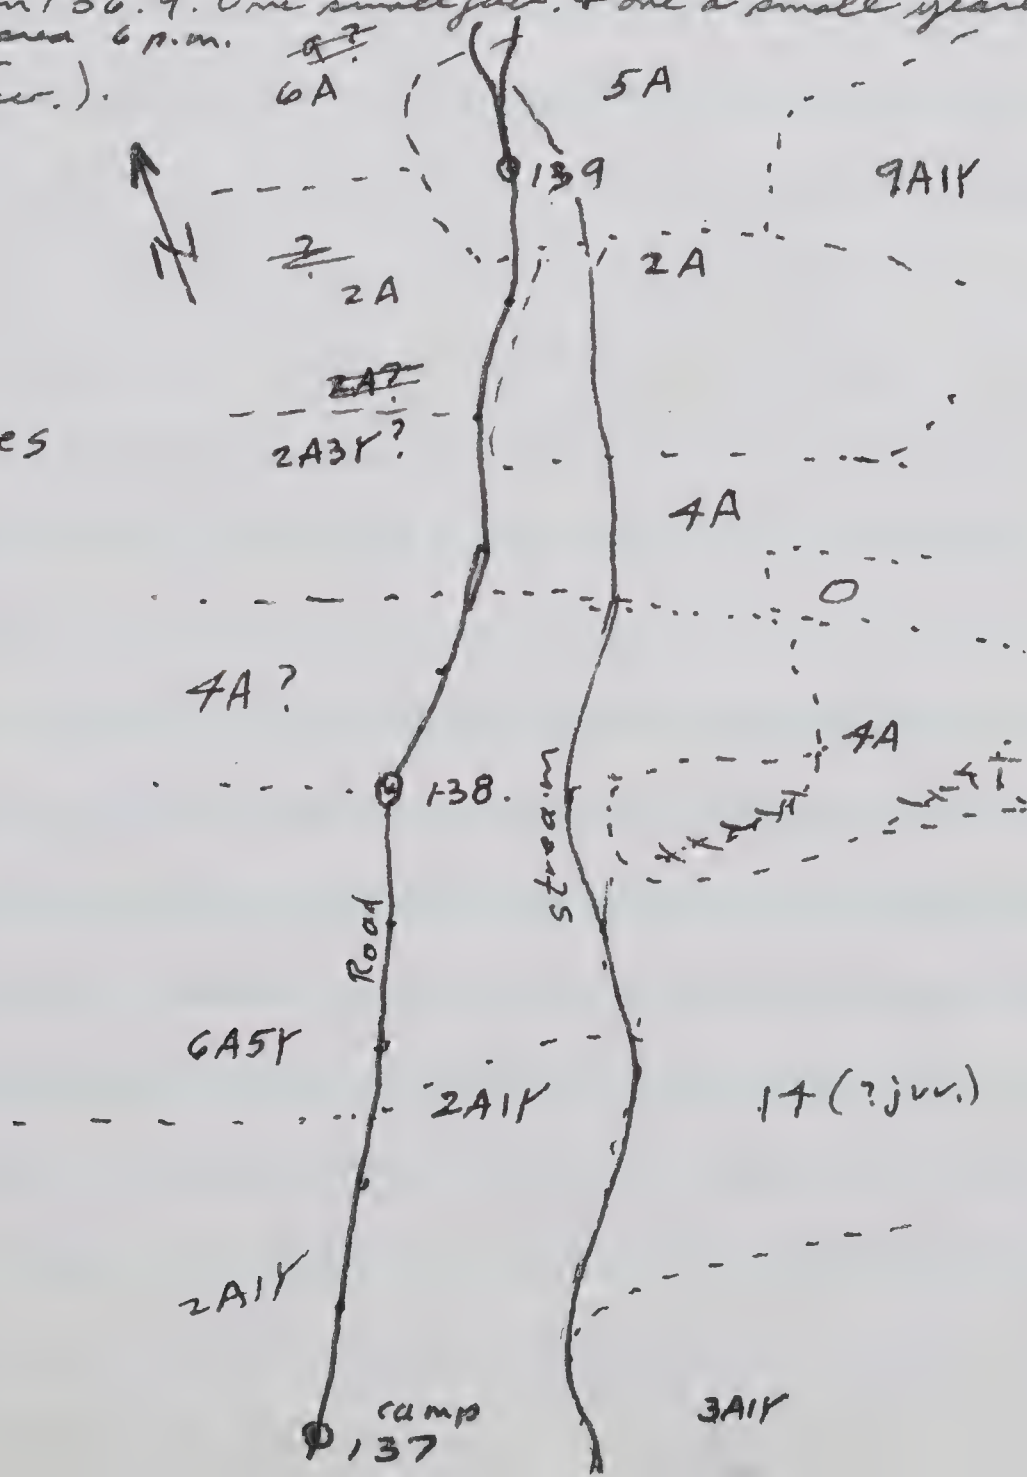 136.9. One small juv. & one a small year
6 p.m.
6A
5A
139
9A1Y
N
?
2A
2A
2A?
2A3Y?
es
4A
O
4A?
4A
138.
stream
Road
6A5Y
2A1Y
14 (? juv.)
2A1Y
camp
137
3A1Y